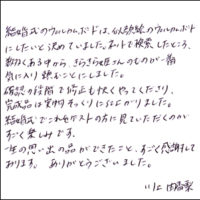 結婚式のウェルカムボードは、似顔絵のウェルカムボード
にしたいと決めていました。ネットで検索したところ、
数多くある中から、きらきら堂さんのものが一番
気に入り頼むことにしました。
確認の段階で修正も快くやってくださり、
完成品は実物そっくりに仕上がりました。
結婚式でゲストの方に見ていただくのが
すごく楽しみです。
一生の思い出の品ができたこと、すごく感謝して
おります。 ありがとうございました。
川上